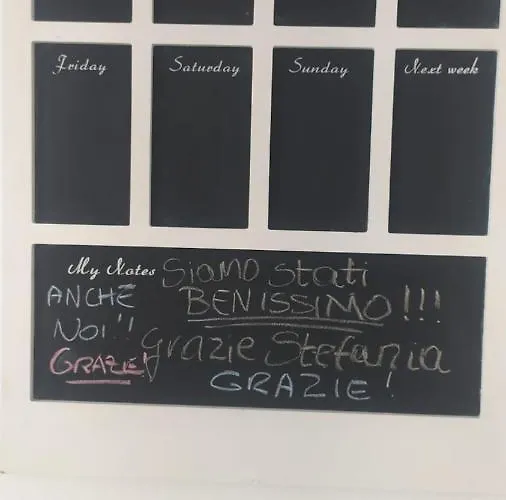 Friday
Saturday
Sunday
Next week
My Notes
Siamo stati
BENISSIMO!!!
Grazie Stefania
GRAZIE!
ANCHE
NOI!!
GRAZIE!